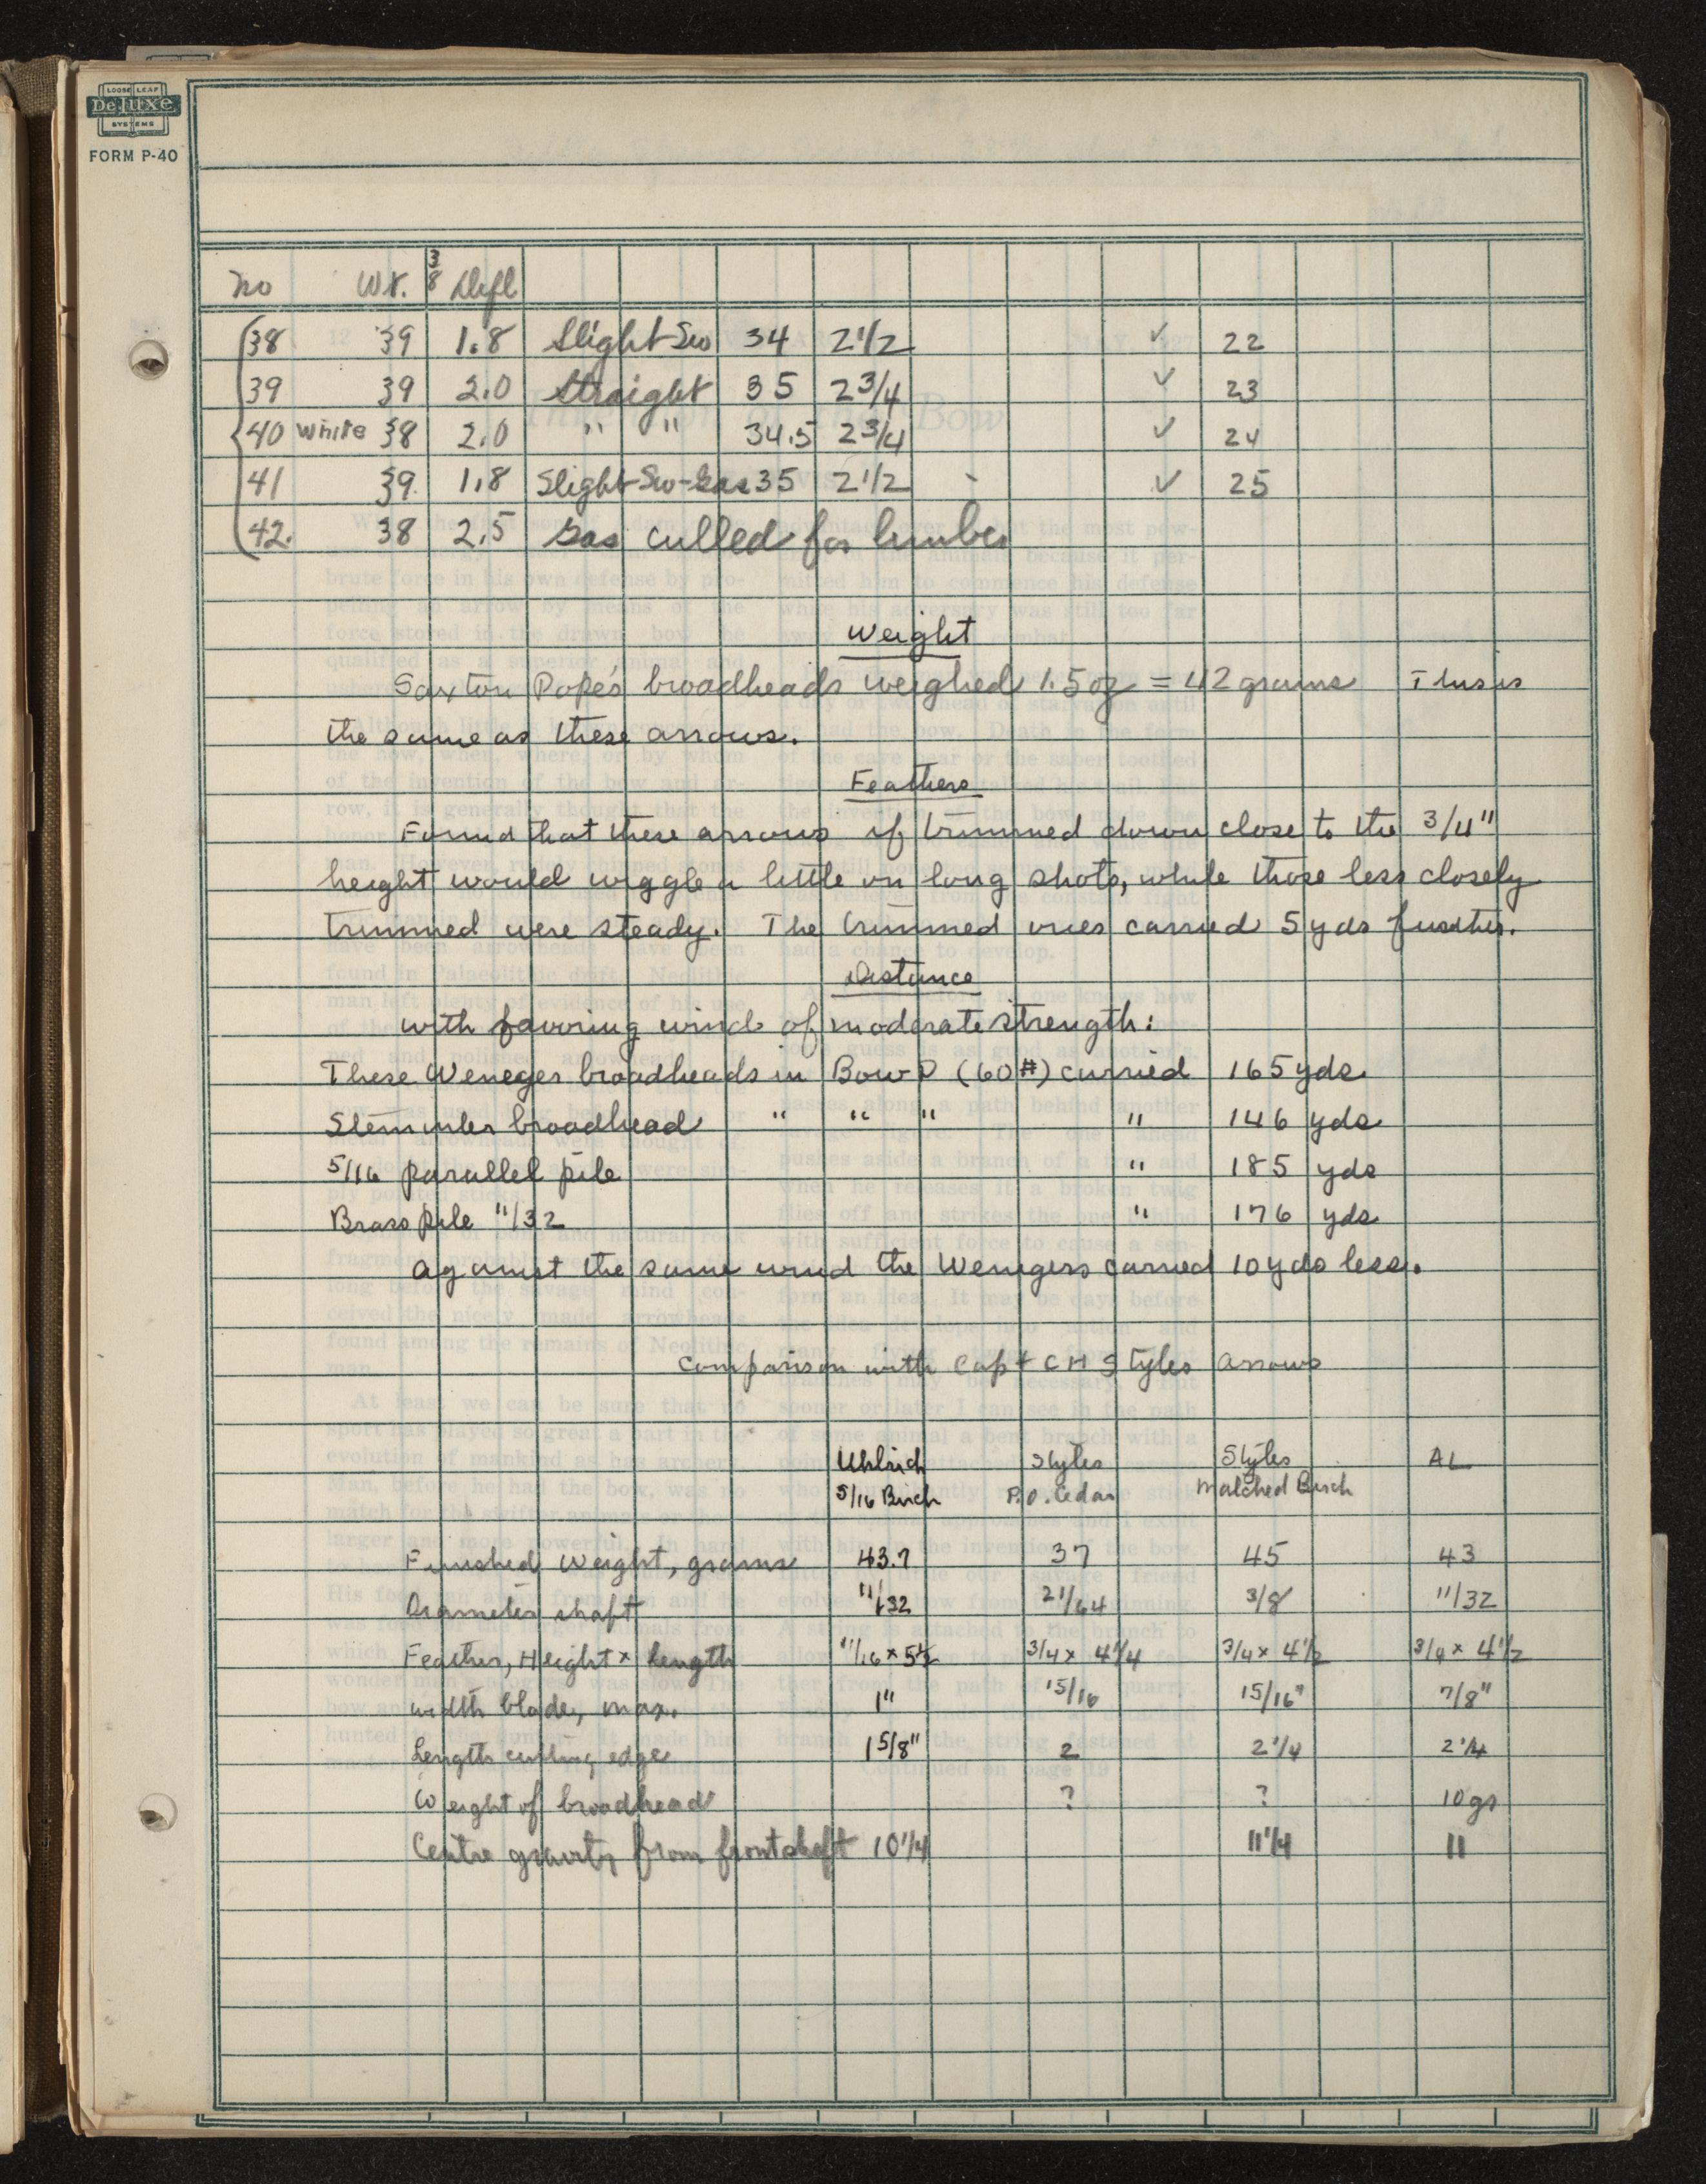 LOOSE LEAF
DeLuxe
SYSTEMS
FORM P-40
No Wt. 3/8 Defl
38 39 1.8 Slight Sw 34 2 1/2 ✓ 22
39 39 2.0 Straight 35 2 3/4 ✓ 23
40 White 38 2.0 " " 34.5 2 3/4 ✓ 24
41 39 1.8 Slight Sw - 35 2 1/2 - ✓ 25
42. 38 2.5 culled for limber
Weight
Saxton Pope's broadheads weighed 1.5 oz = 42 grams This is
the same as these arrows.
Feathers
Found that these arrows if trimmed down close to the 3/4"
height would wiggle a little on long shots, while those less closely
trimmed were steady. The trimmed ones carried 5 yds further.
Distance
with favoring wind of moderate strength:
These Weneger broadheads in Bow D (60#) carried 165 yds
Stemmler broadhead " " " " 146 yds
5/16 parallel pile " 185 yds
Brass pile 11/32 " 176 yds
against the same wind the Wenegers carried 10 yds less.
Comparison with Capt C H Styles arrows
Uhlrich Styles Styles AL
5/16 Birch P.O. Cedar Matched Birch
Finished Weight, grams 43.7 37 45 43
Diameter shaft 11/32 21/64 3/8 11/32
Feather, Height x length 11/16 x 5 1/2 3/4 x 4 1/4 3/4 x 4 1/2 3/4 x 4 1/2
width blade, max. 1" 15/16 15/16" 7/8"
Length cutting edge 1 5/8" 2 2 1/4 2 1/4
Weight of broadhead ? ? 10 gs
Centre gravity from front shaft 10 1/4 11 1/4 11